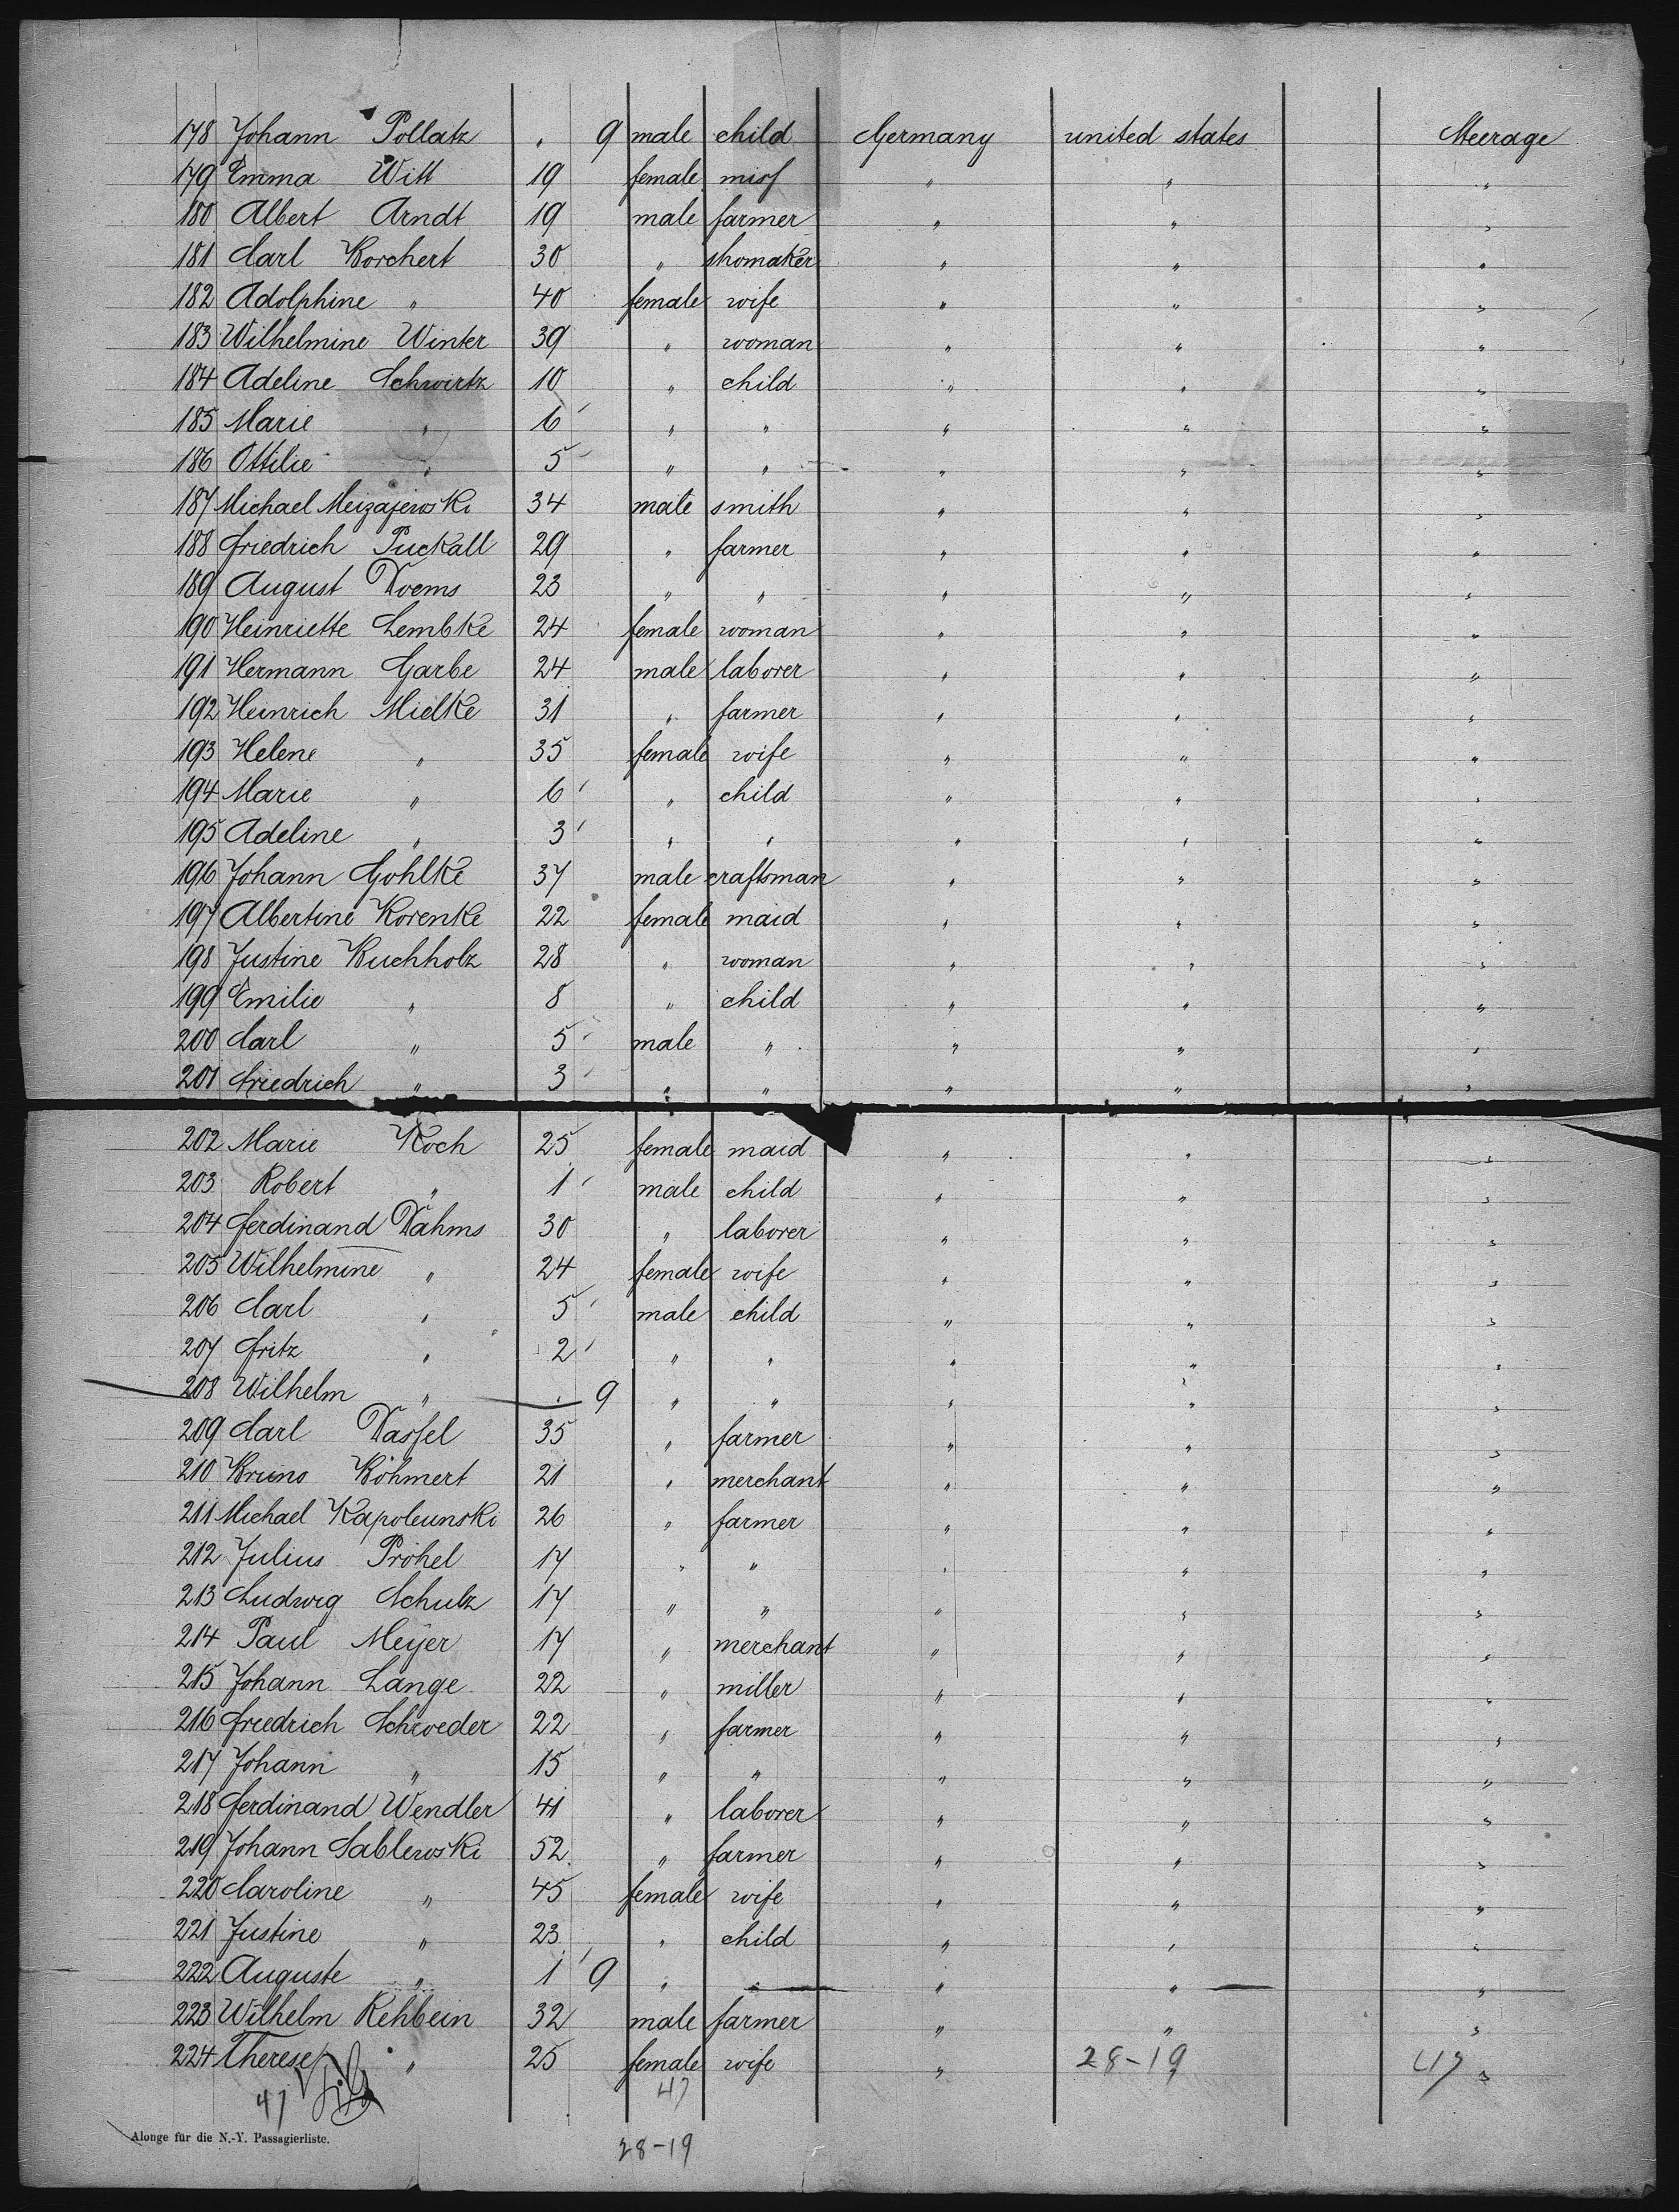 178 Johann Pollatz " 9 male child Germany united states Steerage
179 Emma Witt 19 female miss " " "
180 Albert Arndt 19 male farmer " " "
181 Carl Borchert 30 " shomaker " " "
182 Adolphine " 40 female wife " " "
183 Wilhelmine Winter 39 " woman " " "
184 Adeline Schwirtz 10 " child " " "
185 Marie " 6 " " " " "
186 Ottilie " 5 " " " " "
187 Michael 34 male smith " " "
188 Friedrich Puckall 29 " farmer " " "
189 August Doems 23 " " " " "
190 Heinriette Lembke 24 female woman " " "
191 Hermann Garbe 24 male laborer " " "
192 Heinrich Mielke 31 " farmer " " "
193 Helene " 35 female wife " " "
194 Marie " 6 " child " " "
195 Adeline " 3 " " " " "
196 Johann Gohlke 37 male craftsman " " "
197 Albertine Korenke 22 female maid " " "
198 Justine Buchholz 28 " woman " " "
199 Emilie " 8 " child " " "
200 Carl " 5 male " " " "
201 Friedrich " 3 " " " " "
202 Marie Koch 25 female maid " " "
203 Robert " 1 male child " " "
204 Ferdinand Dahms 30 " laborer " " "
205 Wilhelmine " 24 female wife " " "
206 Carl " 5 male child " " "
207 Fritz " 2 " " " " "
208 Wilhelm " . 9 " " " " "
209 Carl Dassel 35 " farmer " " "
210 Bruno Böhmert 21 " merchant " " "
211 Michael Kapoleunski 26 " farmer " " "
212 Julius Pröhel 17 " " " " "
213 Ludwig Schulz 17 " " " " "
214 Paul Meyer 17 " merchant " " "
215 Johann Lange 22 " miller " " "
216 Friedrich Schroeder 22 " farmer " " "
217 Johann " 15 " " " " "
218 Ferdinand Wendler 41 " laborer " " "
219 Johann Sablewski 52 " farmer " " "
220 Caroline " 45 female wife " " "
221 Justine " 23 " child " " "
222 Auguste " 1 9 " " " " "
223 Wilhelm Rehbein 32 male farmer " " "
224 Therese " 25 female wife " 28-19 47 "
47 47
Alonge für die N.-Y. Passagierliste.
28-19